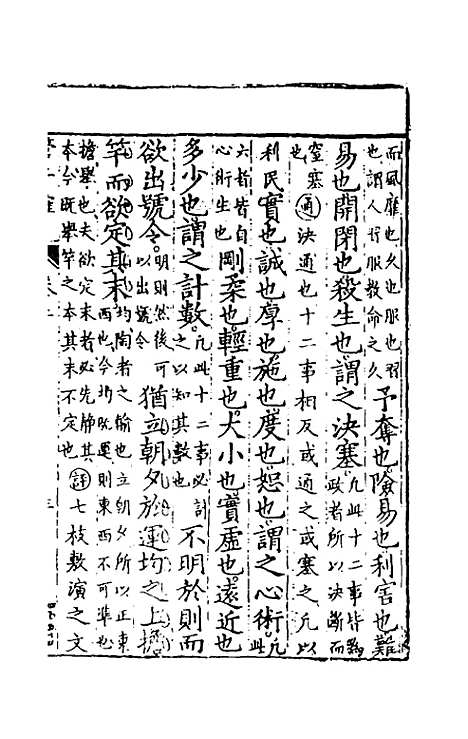 而風靡也久也服也習也謂人行服教命之久予奪也險易也利害也難
易也開閉也殺生也謂之決塞凡此十二事皆為政者所以決斷而
窒塞也通決通也十二事相反或通之或塞之凡以
利民實也誠也厚也施也度也恕也謂之心術凡此
六者皆自心術生也剛柔也輕重也大小也實虛也遠近也
多少也謂之計數凡此十二事必計之以知其數也不明於則而
欲出號令明則然後可以出號令猶立朝夕於運均之上擔
竿而欲定其末均陶者之輪也立朝夕所以正東西也今均既運則東西不可準也
擔舉也夫欲定末者必先靜其本今既舉竿之本其末不定也評七枝敷演之文